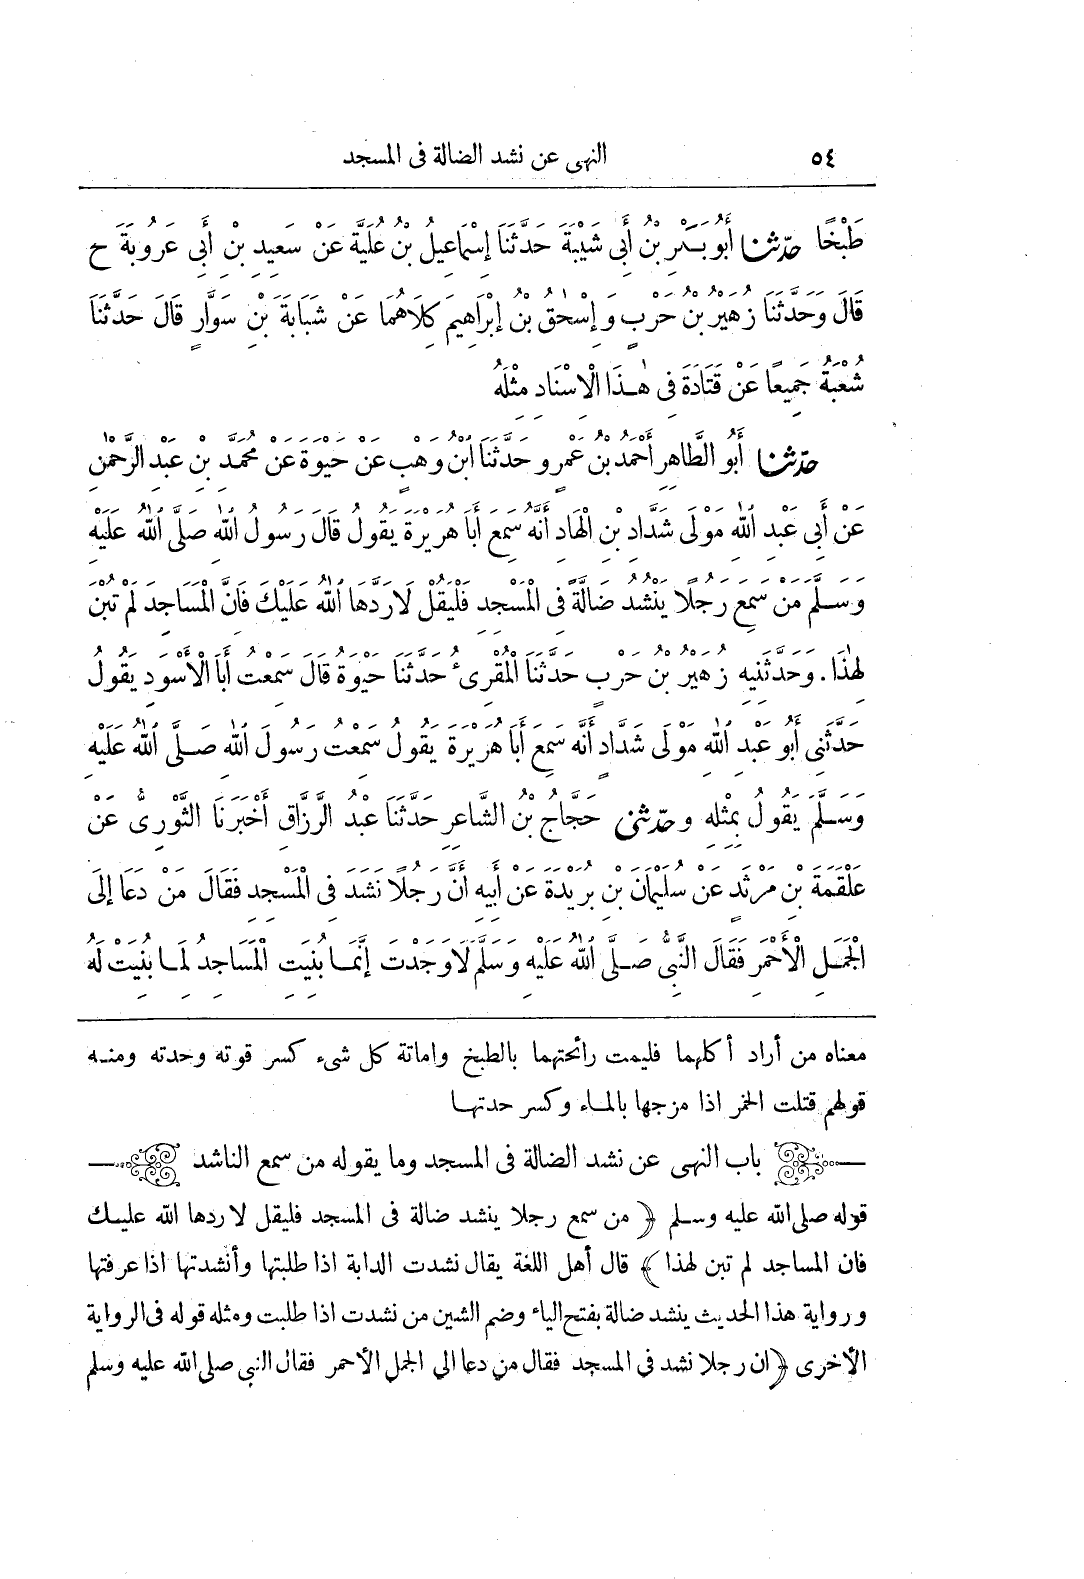 ٥٤ النهى عن نشد الضالة فى المسجد
طَبْخًا حدّثنا أَبُو بَكْرِ بْنُ أَبِي شَيْبَةَ حَدَّثَنَا إِسْمَاعِيلُ بْنُ عُلَيَّةَ عَنْ سَعِيدِ بْنِ أَبِي عَرُوبَةَ ح
قَالَ وَحَدَّثَنَا زُهَيْرُ بْنُ حَرْبٍ وَإِسْحٰقُ بْنُ إِبْرَاهِيمَ كِلَاهُمَا عَنْ شَبَابَةَ بْنِ سَوَّارٍ قَالَ حَدَّثَنَا
شُعْبَةُ جَمِيعًا عَنْ قَتَادَةَ فِى هٰذَا الْاِسْنَادِ مِثْلَهُ
حدّثنا أَبُو الطَّاهِرِ أَحْمَدُ بْنُ عَمْرٍو حَدَّثَنَا ابْنُ وَهْبٍ عَنْ حَيْوَةَ عَنْ مُحَمَّدِ بْنِ عَبْدِ الرَّحْمٰنِ
عَنْ أَبِي عَبْدِ اللهِ مَوْلَى شَدَّادِ بْنِ الْهَادِ أَنَّهُ سَمِعَ أَبَا هُرَيْرَةَ يَقُولُ قَالَ رَسُولُ اللهِ صَلَّى اللهُ عَلَيْهِ
وَسَلَّمَ مَنْ سَمِعَ رَجُلًا يَنْشُدُ ضَالَّةً فِى الْمَسْجِدِ فَلْيَقُلْ لَارَدَّهَا اللهُ عَلَيْكَ فَانَّ الْمَسَاجِدَ لَمْ تُبْنَ
لِهٰذَا . وَحَدَّثَنِيهِ زُهَيْرُ بْنُ حَرْبٍ حَدَّثَنَا الْمُقْرِئُ حَدَّثَنَا حَيْوَةُ قَالَ سَمِعْتُ أَبَا الْأَسْوَدِ يَقُولُ
حَدَّثَنِي أَبُو عَبْدِ اللهِ مَوْلَى شَدَّادٍ أَنَّهُ سَمِعَ أَبَا هُرَيْرَةَ يَقُولُ سَمِعْتُ رَسُولَ اللهِ صَلَّى اللهُ عَلَيْهِ
وَسَلَّمَ يَقُولُ بِمِثْلِهِ وحدّثنى حَجَّاجُ بْنُ الشَّاعِرِ حَدَّثَنَا عَبْدُ الرَّزَّاقِ أَخْبَرَنَا الثَّوْرِىُّ عَنْ
عَلْقَمَةَ بْنِ مَرْثَدٍ عَنْ سُلَيْمَانَ بْنِ بُرَيْدَةَ عَنْ أَبِيهِ أَنَّ رَجُلًا نَشَدَ فِى الْمَسْجِدِ فَقَالَ مَنْ دَعَا إِلَى
الْجَمَلِ الْأَحْمَرِ فَقَالَ النَّبِىُّ صَلَّى اللهُ عَلَيْهِ وَسَلَّمَ لَاوَجَدْتَ إِنَّمَا بُنِيَتِ الْمَسَاجِدُ لِمَا بُنِيَتْ لَهُ
معناه من أراد أكلهما فليمت رائحتهما بالطبخ واماتة كل شىء كسر قوته وحدته ومنه
قولهم قتلت الخمر اذا مزجها بالماء وكسر حدتها
باب النهى عن نشد الضالة فى المسجد وما يقوله من سمع الناشد
قوله صلى الله عليه وسلم ﴿ من سمع رجلا ينشد ضالة فى المسجد فليقل لاردها الله عليك
فان المساجد لم تبن لهذا ﴾ قال أهل اللغة يقال نشدت الدابة اذا طلبتها وأنشدتها اذا عرفتها
ورواية هذا الحديث ينشد ضالة بفتح الياء وضم الشين من نشدت اذا طلبت ومثله قوله فى الرواية
الأخرى ﴿ ان رجلا نشد فى المسجد فقال من دعا الى الجمل الأحمر فقال النبى صلى الله عليه وسلم